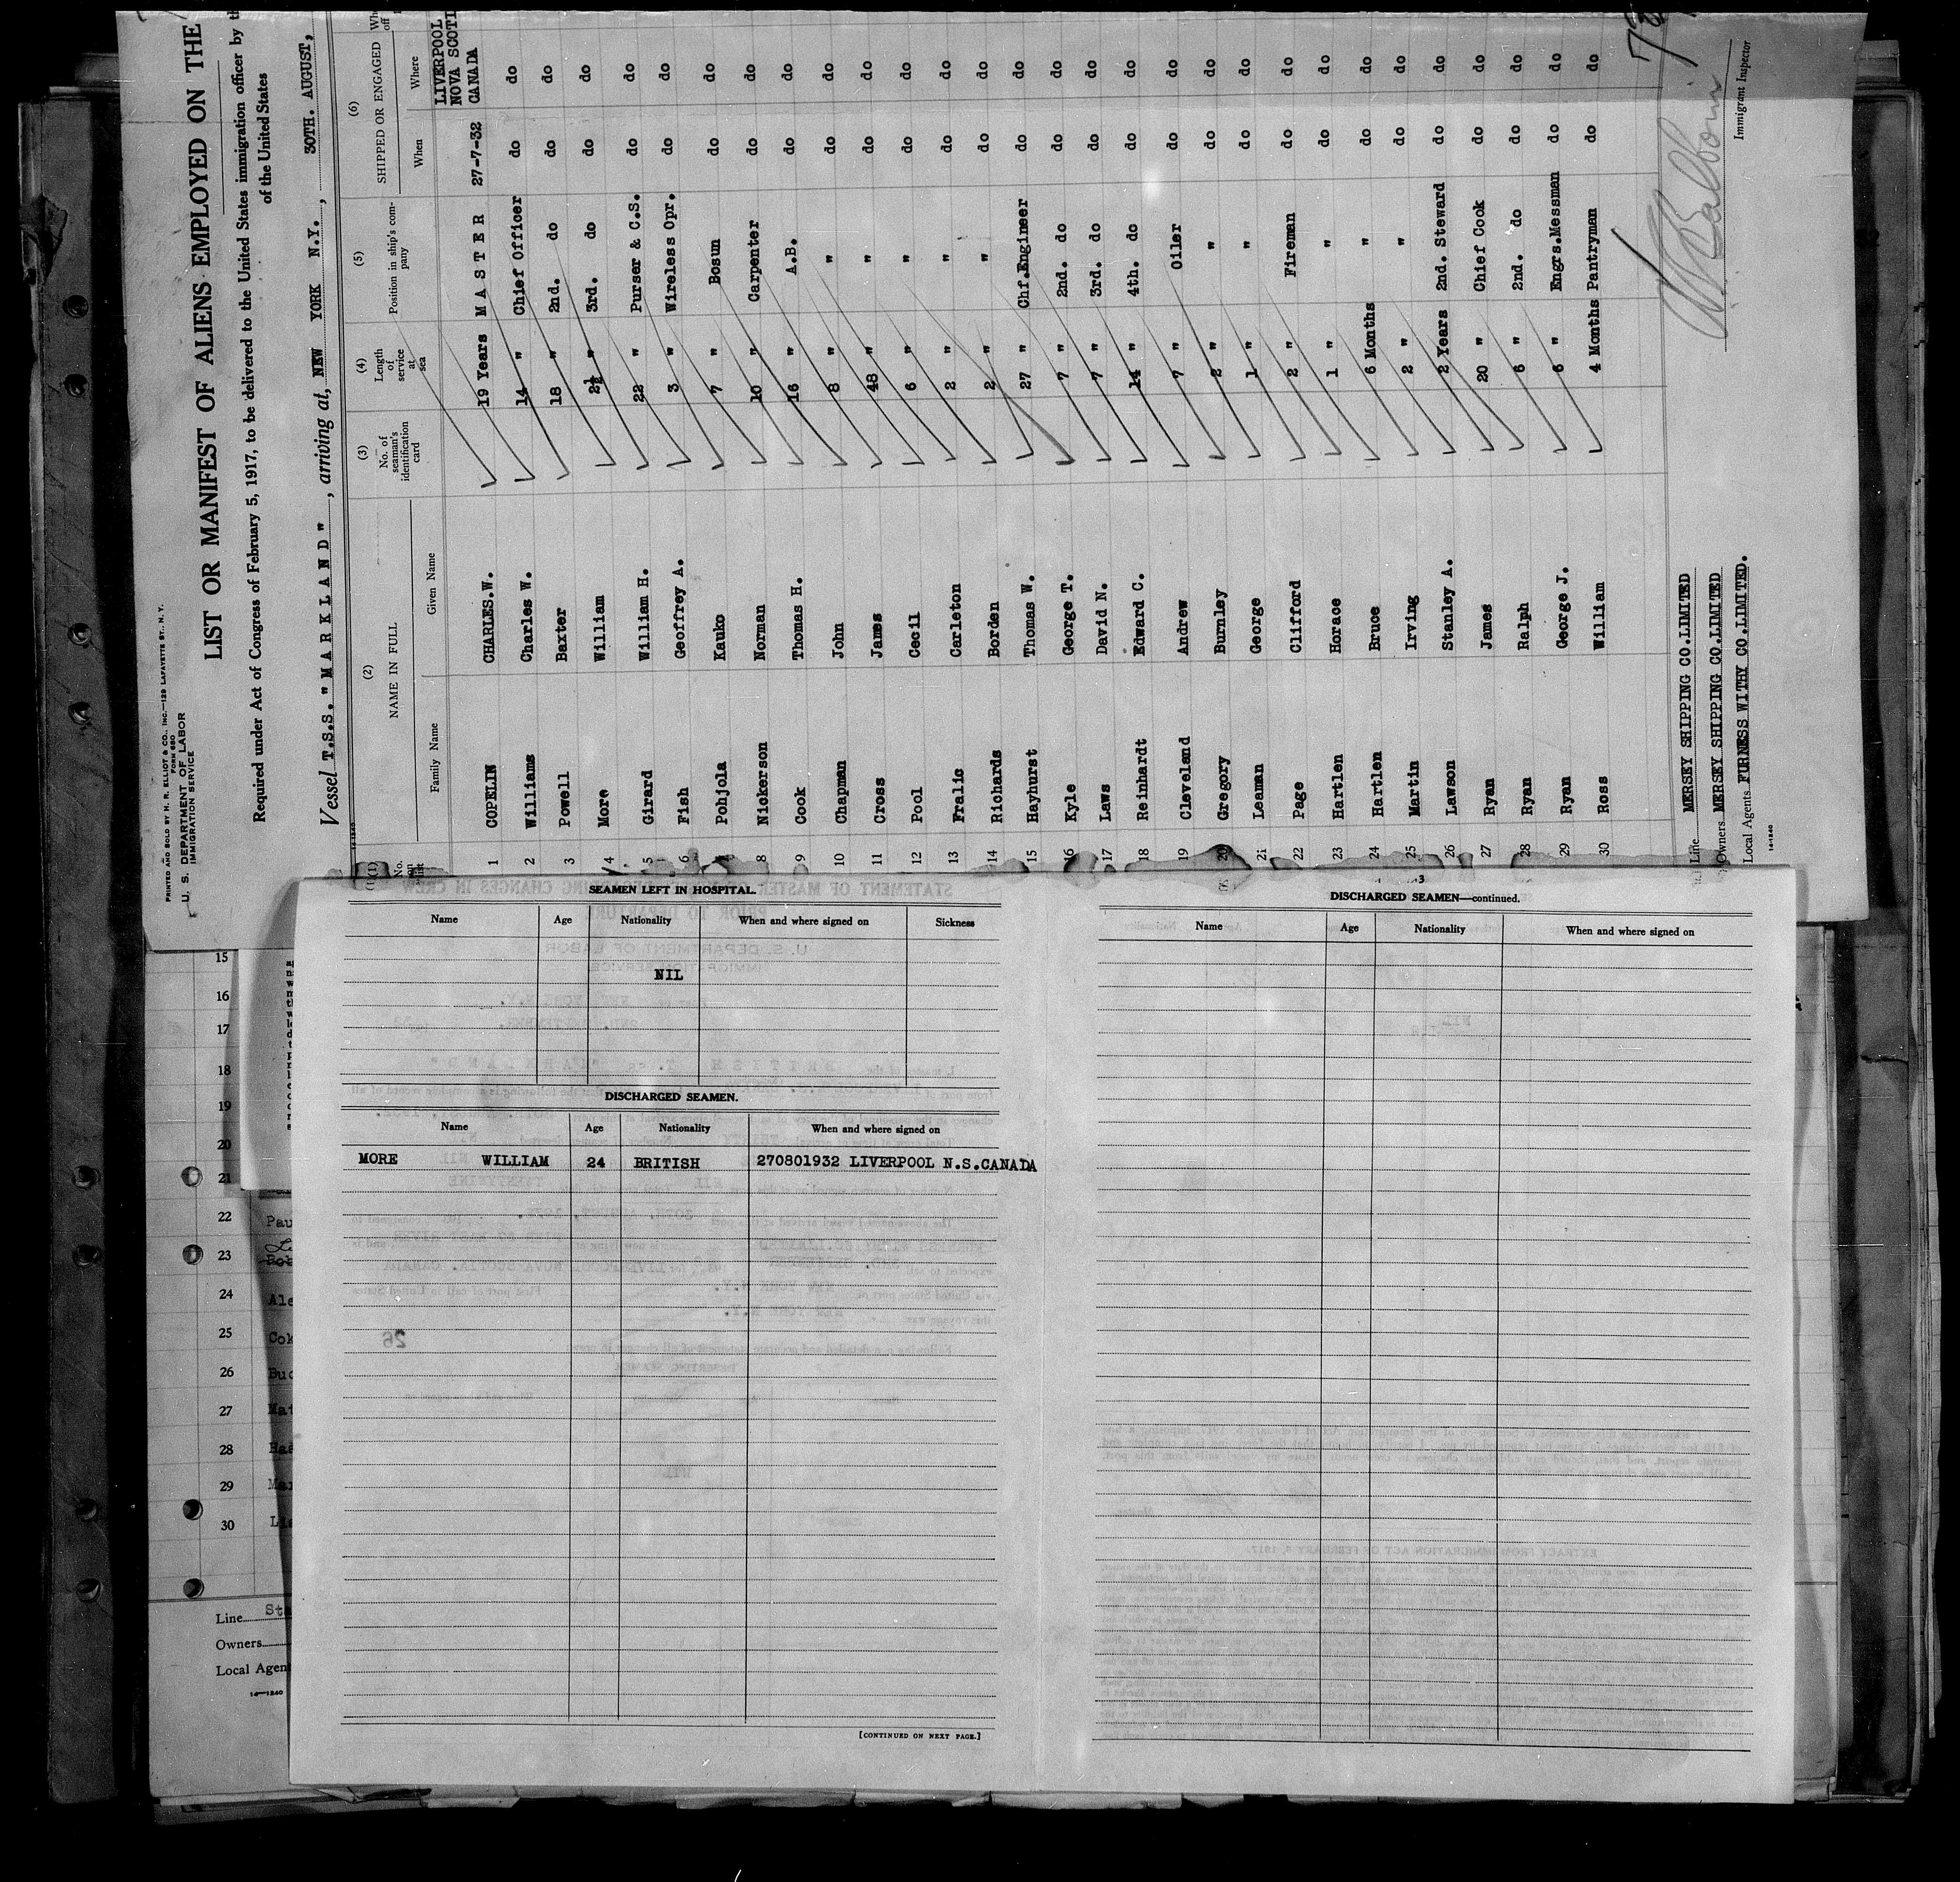 PRINTED AND SOLD BY H. R. ELLIOT & CO., INC.—129 LAFAYETTE ST., N. Y.
FORM 680
U. S. DEPARTMENT OF LABOR
IMMIGRATION SERVICE
LIST OR MANIFEST OF ALIENS EMPLOYED ON THE
Required under Act of Congress of February 5, 1917, to be delivered to the United States immigration officer by
of the United States
Vessel T.S.S. "MARKLAND", arriving at, NEW YORK N.Y., 30TH. AUGUST,
(1) (2) (3) (4) (5) (6)
NAME IN FULL No. of seaman's identification card Length of service at sea Position in ship's company SHIPPED OR ENGAGED
Family Name Given Name When Where
1 COPELIN CHARLES.W. 19 Years MASTER 27-7-32 LIVERPOOL NOVA SCOTI CANADA
2 Williams Charles W. 14 " Chief Officer do do
3 Powell Baxter 18 " 2nd. do do do
4 More William 2½ " 3rd. do do do
5 Girard William H. 22 " Purser & C.S. do do
6 Fish Geoffrey A. 3 " Wireless Opr. do do
7 Pohjola Kauko 7 " Bosun do do
8 Nickerson Norman 10 " Carpenter do do
9 Cook Thomas H. 16 " A.B. do do
10 Chapman John 8 " " do do
11 Cross James 48 " " do do
12 Pool Cecil 6 " " do do
13 Fralic Carleton 2 " " do do
14 Richards Borden 2 " " do do
15 Hayhurst Thomas W. 27 " Chf.Engineer do do
16 Kyle George T. 7 " 2nd. do do do
17 Laws David N. 7 " 3rd. do do do
18 Reinhardt Edward C. 14 " 4th. do do do
19 Cleveland Andrew 7 " Oiler do do
20 Gregory Burnley 2 " " do do
21 Leaman George 1 " " do do
22 Page Clifford 2 " Fireman do do
23 Hartlen Horace 1 " " do do
24 Hartlen Bruce 6 Months " do do
25 Martin Irving 2 " " do do
26 Lawson Stanley A. 2 Years 2nd. Steward do do
27 Ryan James 20 " Chief Cook do do
28 Ryan Ralph 6 " 2nd. do do do
29 Ryan George J. 6 " Engrs.Messman do do
30 Ross William 4 Months Pantryman do do
Line MERSEY SHIPPING CO.LIMITED
Owners MERSEY SHIPPING CO.LIMITED
Local Agents FURNESS WITHY CO.LIMITED.
14-1240
Immigrant Inspector
SEAMEN LEFT IN HOSPITAL.
Name Age Nationality When and where signed on Sickness
NIL
DISCHARGED SEAMEN.
Name Age Nationality When and where signed on
MORE WILLIAM 24 BRITISH 270801932 LIVERPOOL N.S.CANADA
[CONTINUED ON NEXT PAGE.]
3
DISCHARGED SEAMEN—continued.
Name Age Nationality When and where signed on
15
16
17
18
19
20
21
22 Pau
23
24 Ale
25 Cok
26 Buc
27 Mat
28
29 Mar
30
Line Sta
Owners
Local Agen
14—1240